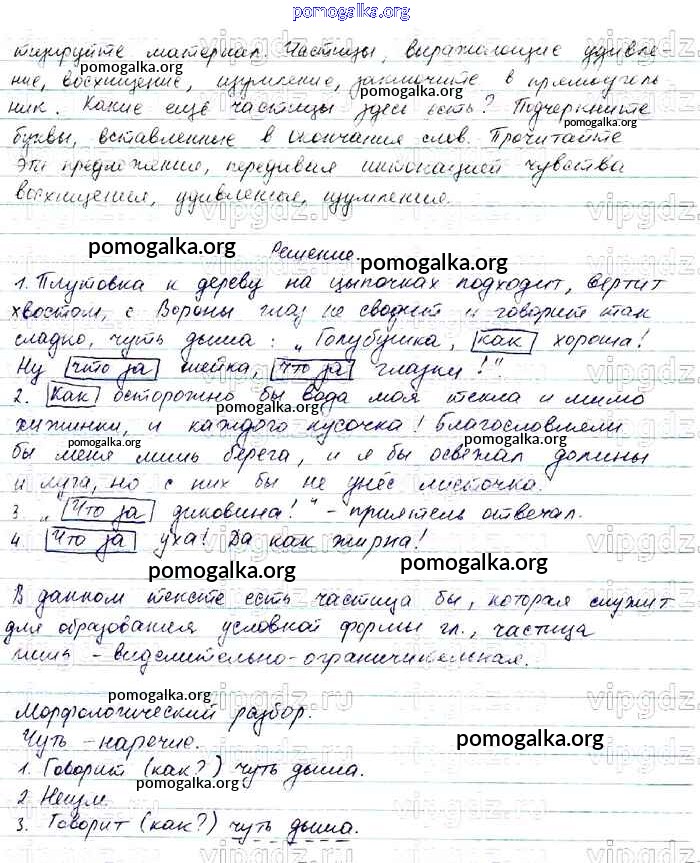 pomogalka.org
тизируйте материал. Частицы, выражающие удивле-
pomogalka.org
ние, восхищение, изумление, заключите в прямоуголь
pomogalka.org
ник. Какие ещё частицы здесь есть? Подчеркните
буквы, вставленные в окончания слов. Прочитайте
pomogalka.org
эти предложения, передавая интонацией чувства
восхищения, удивления, изумления.
vipgdz.ru
pomogalka.org
Решение.
pomogalka.org
1. Плутовка к дереву на цыпочках подходит, вертит
хвостом, с Вороны глаз не сводит и говорит так
сладко, чуть дыша: „Голубушка, как хороша!
Ну что за шейка, что за глазки!"
2. Как осторожно бы вода моя текла и мимо
pomogalka.org
хижинки, и каждого кусочка! Благословили
pomogalka.org
бы меня лишь берега, и я бы освежал долины
и луга, но с них бы не унёс листочка.
3. „Что за диковина!" - приятель отвечал.
4. Что за уха! Да как жирна!
pomogalka.org
pomogalka.org
В данном тексте есть частица бы, которая служит
для образования условной формы гл., частица
лишь - выделительно-ограничительная.
pomogalka.org
Морфологический разбор.
Чуть - наречие.
pomogalka.org
1. Говорит (как?) чуть дыша.
pomogalka.org
2. Неизм.
3. Говорит (как?) чуть дыша.